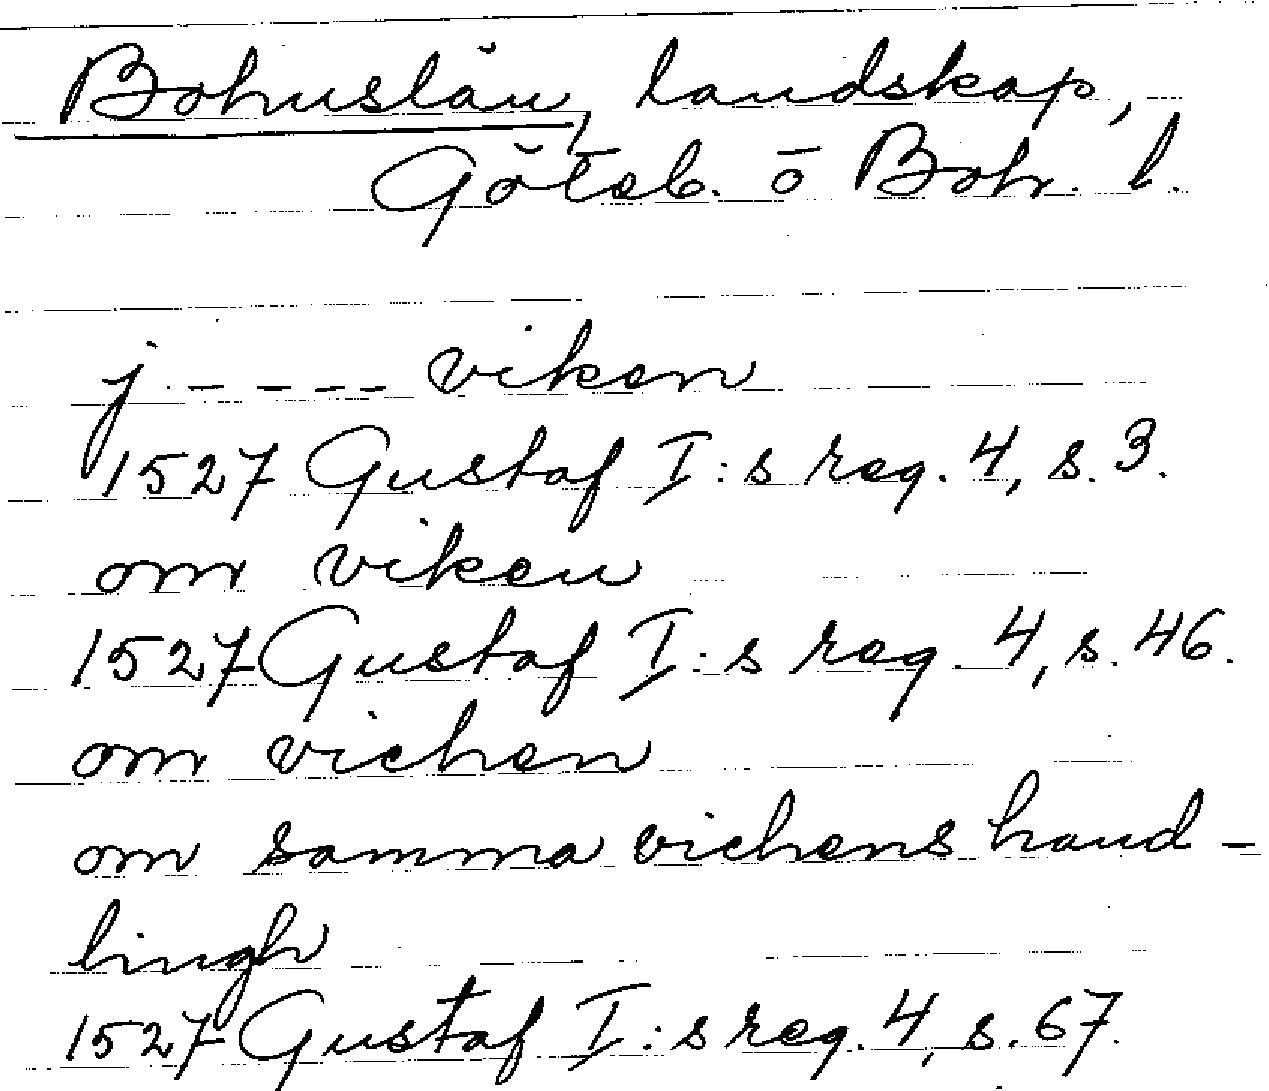 Bohuslän, landskap,
Göteb. o Boh. l.
j ----- viken
1527 Gustaf I:s reg. 4, s. 3.
om viken
1527 Gustaf I:s reg. 4, s. 46.
om vichen
om samma vichens hand-
lingh
1527 Gustaf I:s reg. 4, s. 67.